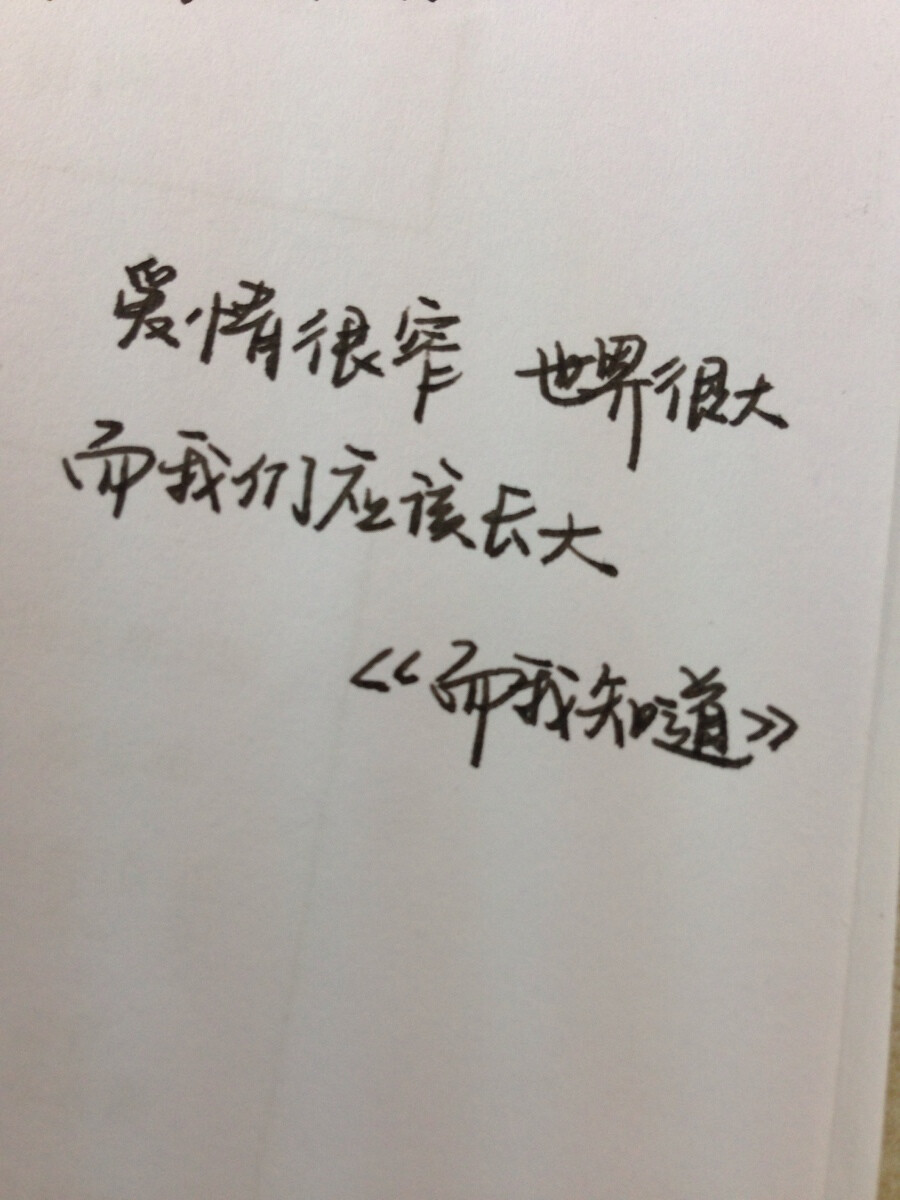 爱情很窄 世界很大
而我们应该长大
《而我知道》